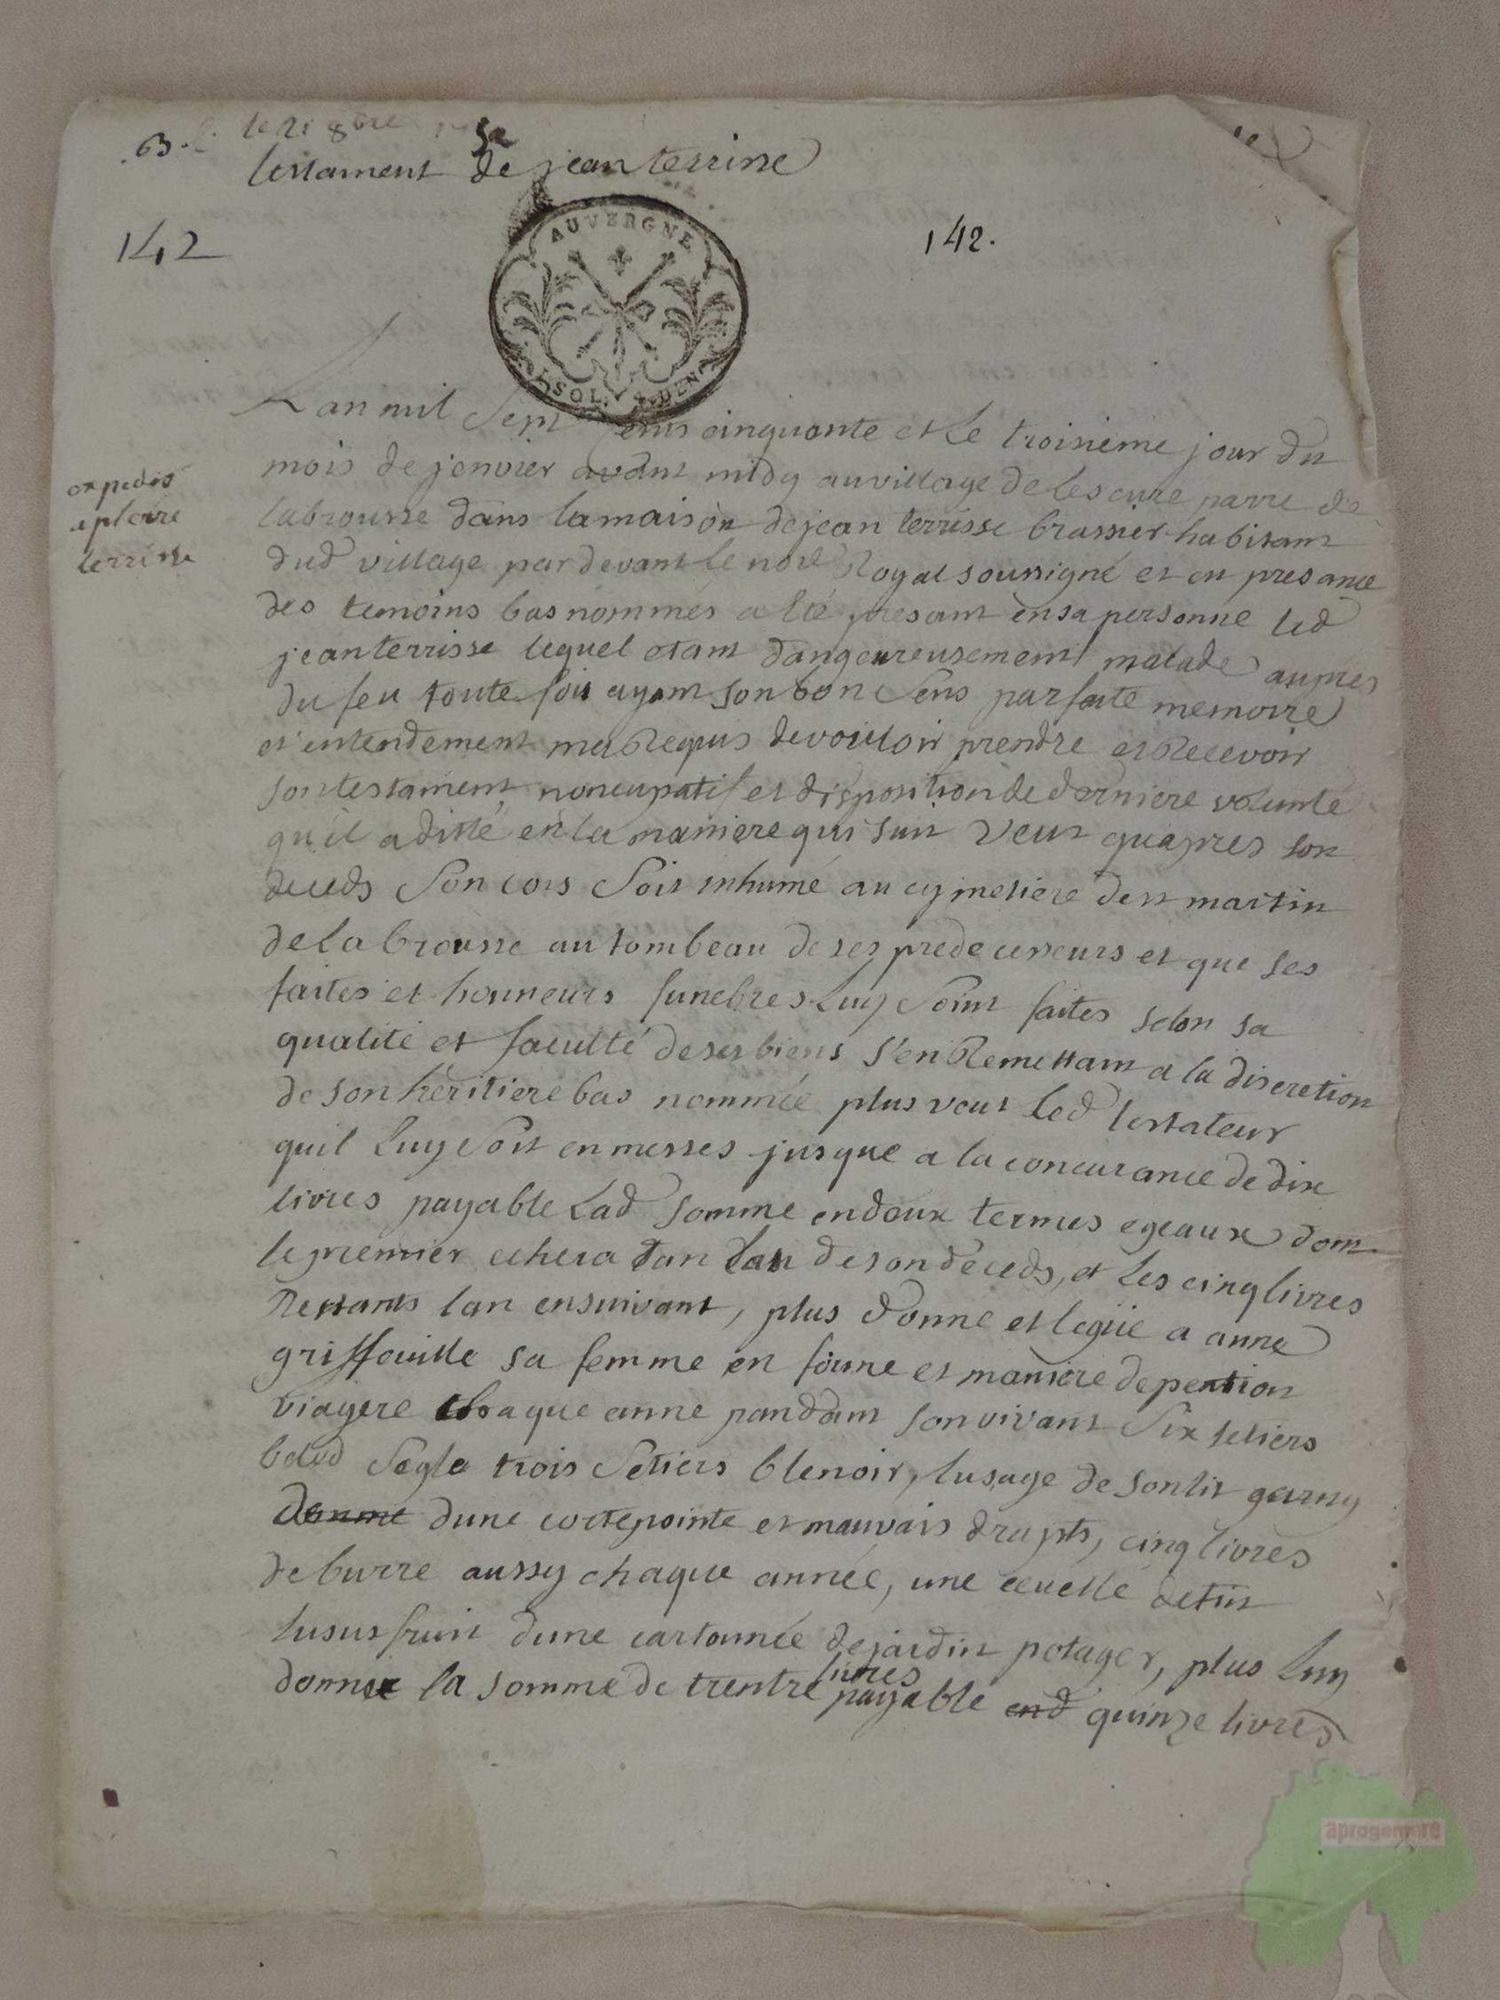 63. le 21 8bre
testament de jean terrisse
142
142.
AUVERGNE
SOL. 4. DEN
Lan mil sept cens cinquante et le troisieme jour du
mois de jenvier avant midy au village de Lescure parre de
labrousse dans la maison de jean terrisse brassier habitant
dud village par devant le nore Royal soussigné et en presance
des temoins bas nommés a eté presant en sa personne led
jean terrisse lequel etant dangeureusement malade aupres
du feu toute fois ayant son bon sens parfaite memoire
et entendement ma Requis de vouloir prendre et Recevoir
son testament noncupatif et disposition de derniere volunté
qu'il a ditté en la maniere qui suit veut quapres son
deceds son cors soit inhumé au cymetiere de st martin
de la brousse au tombeau de ses predecesseurs et que ses
faites et honneurs funebres luy soint faites selon sa
qualité et faculté de ses biens s'en Remettant a la discretion
de son héritiere bas nommée plus veut led testateur
quil luy soit en messes jusque a la concurance de dix
livres payable Lad somme en deux termes egeaux dont
le premier echera dan lan de son deceds, et les cinq livres
Restants lan ensuivant, plus donne et legüe a anne
griffouille sa femme en forme et maniere de pention
viagere chaque anne pandant son vivant six setiers
bled segle trois setiers ble noir, lusage de son lit garny
donne dune cortepointe et mauvais drapts, cinq livres
de burre aussy chaque année, une ecuelle detin
lusus fruit dune cartonnée de jardin potager, plus luy
donne la somme de trentre livres payable end quinze livres
expedié
a pierre
terrisse
aprogemere